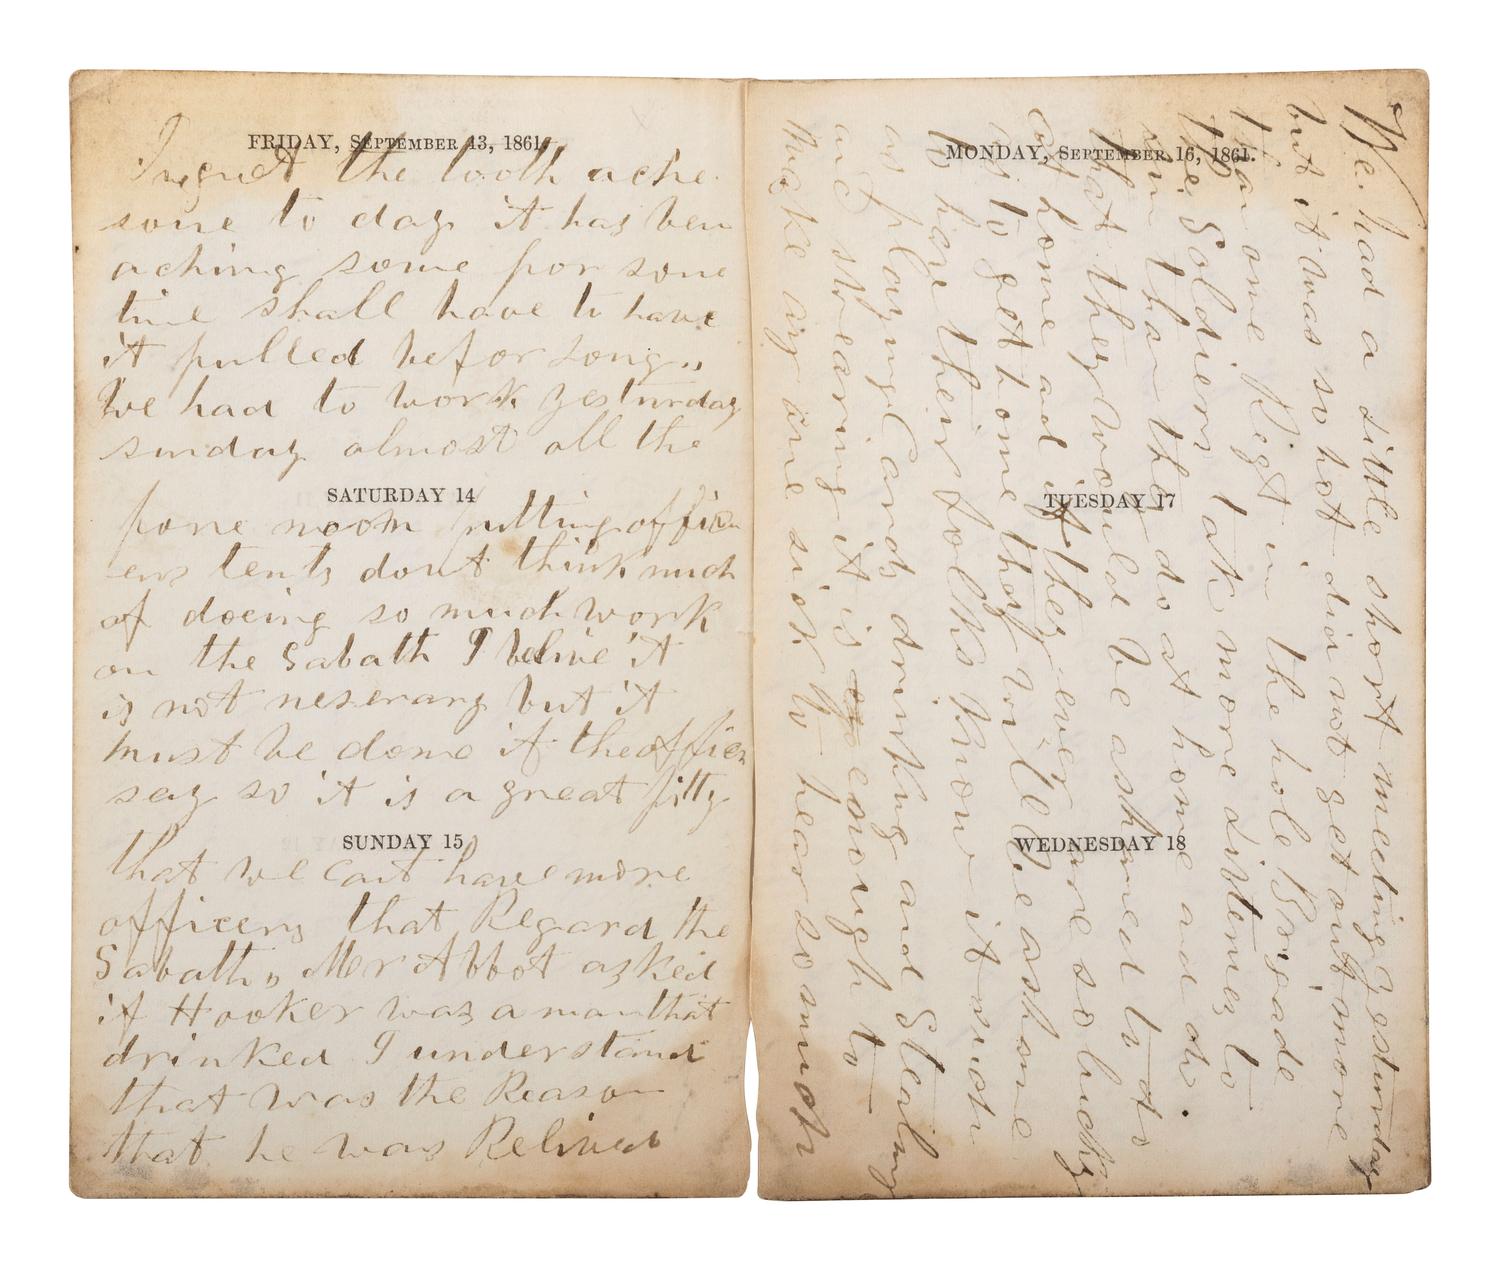 FRIDAY, SEPTEMBER 13, 1861.
I regret the tooth ache
some to day it has ben
aching some for some
time shall have to have
it pulled befor long,,
We had to work yesturday
sunday almost all the
SATURDAY 14
fore noon putting offic
ers tents dont think much
of doeing so much work
on the Sabath I belive it
is not neserary but it
must be done if the officers
say so it is a great pitty
SUNDAY 15
that we cant have more
officers that Regard the
Sabath,, Mer Abbot asked
if Hooker was a man that
drinked I understand
that was the Reason
that he was Relived
MONDAY, SEPTEMBER 16, 1861.
TUESDAY 17
WEDNESDAY 18
We had a little short meeting yesturday
but it was so hot did not get out more
than one Regt in the hole Brigade
the Soldiers take more Listernes to
sin than the do at home and do
that they would be ashamed to do
at home ad if they ever are so lucky
as to get home they will be ashome
to have their folks know it such
as playing Cards drinking and Stealing
and swearing it is enough to
make any one sick to hear so much